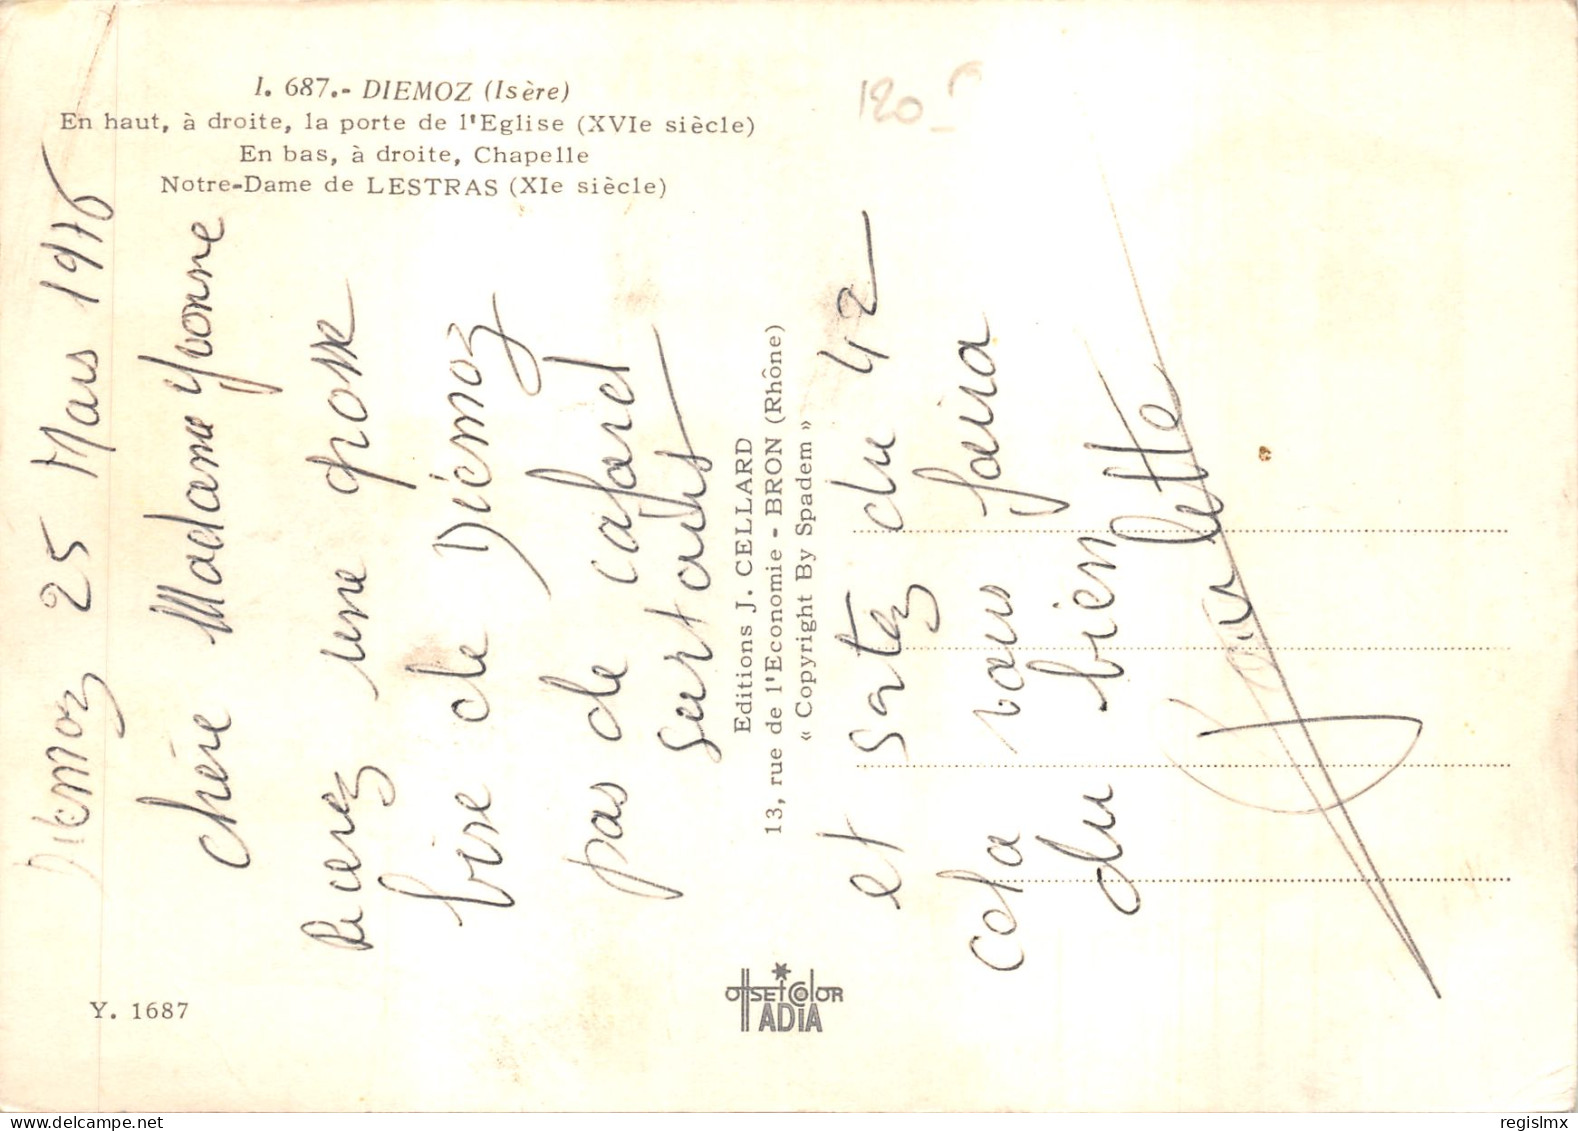 I. 687.- DIEMOZ (Isère)
En haut, à droite, la porte de l'Eglise (XVIe siècle)
En bas, à droite, Chapelle
Notre-Dame de LESTRAS (XIe siècle)
120
Diémoz 25 Mars 1976
chère Madame Yvonne
Recevez une grosse
bise de Diémoz
pas de cafard
surtout
et sortez du 42
cela vous faira
du bien
Paulette
Editions J. CELLARD
13, rue de l'Economie - BRON (Rhône)
« Copyright By Spadem »
Y. 1687
OffSEt COlOR
ADIA
regislmx